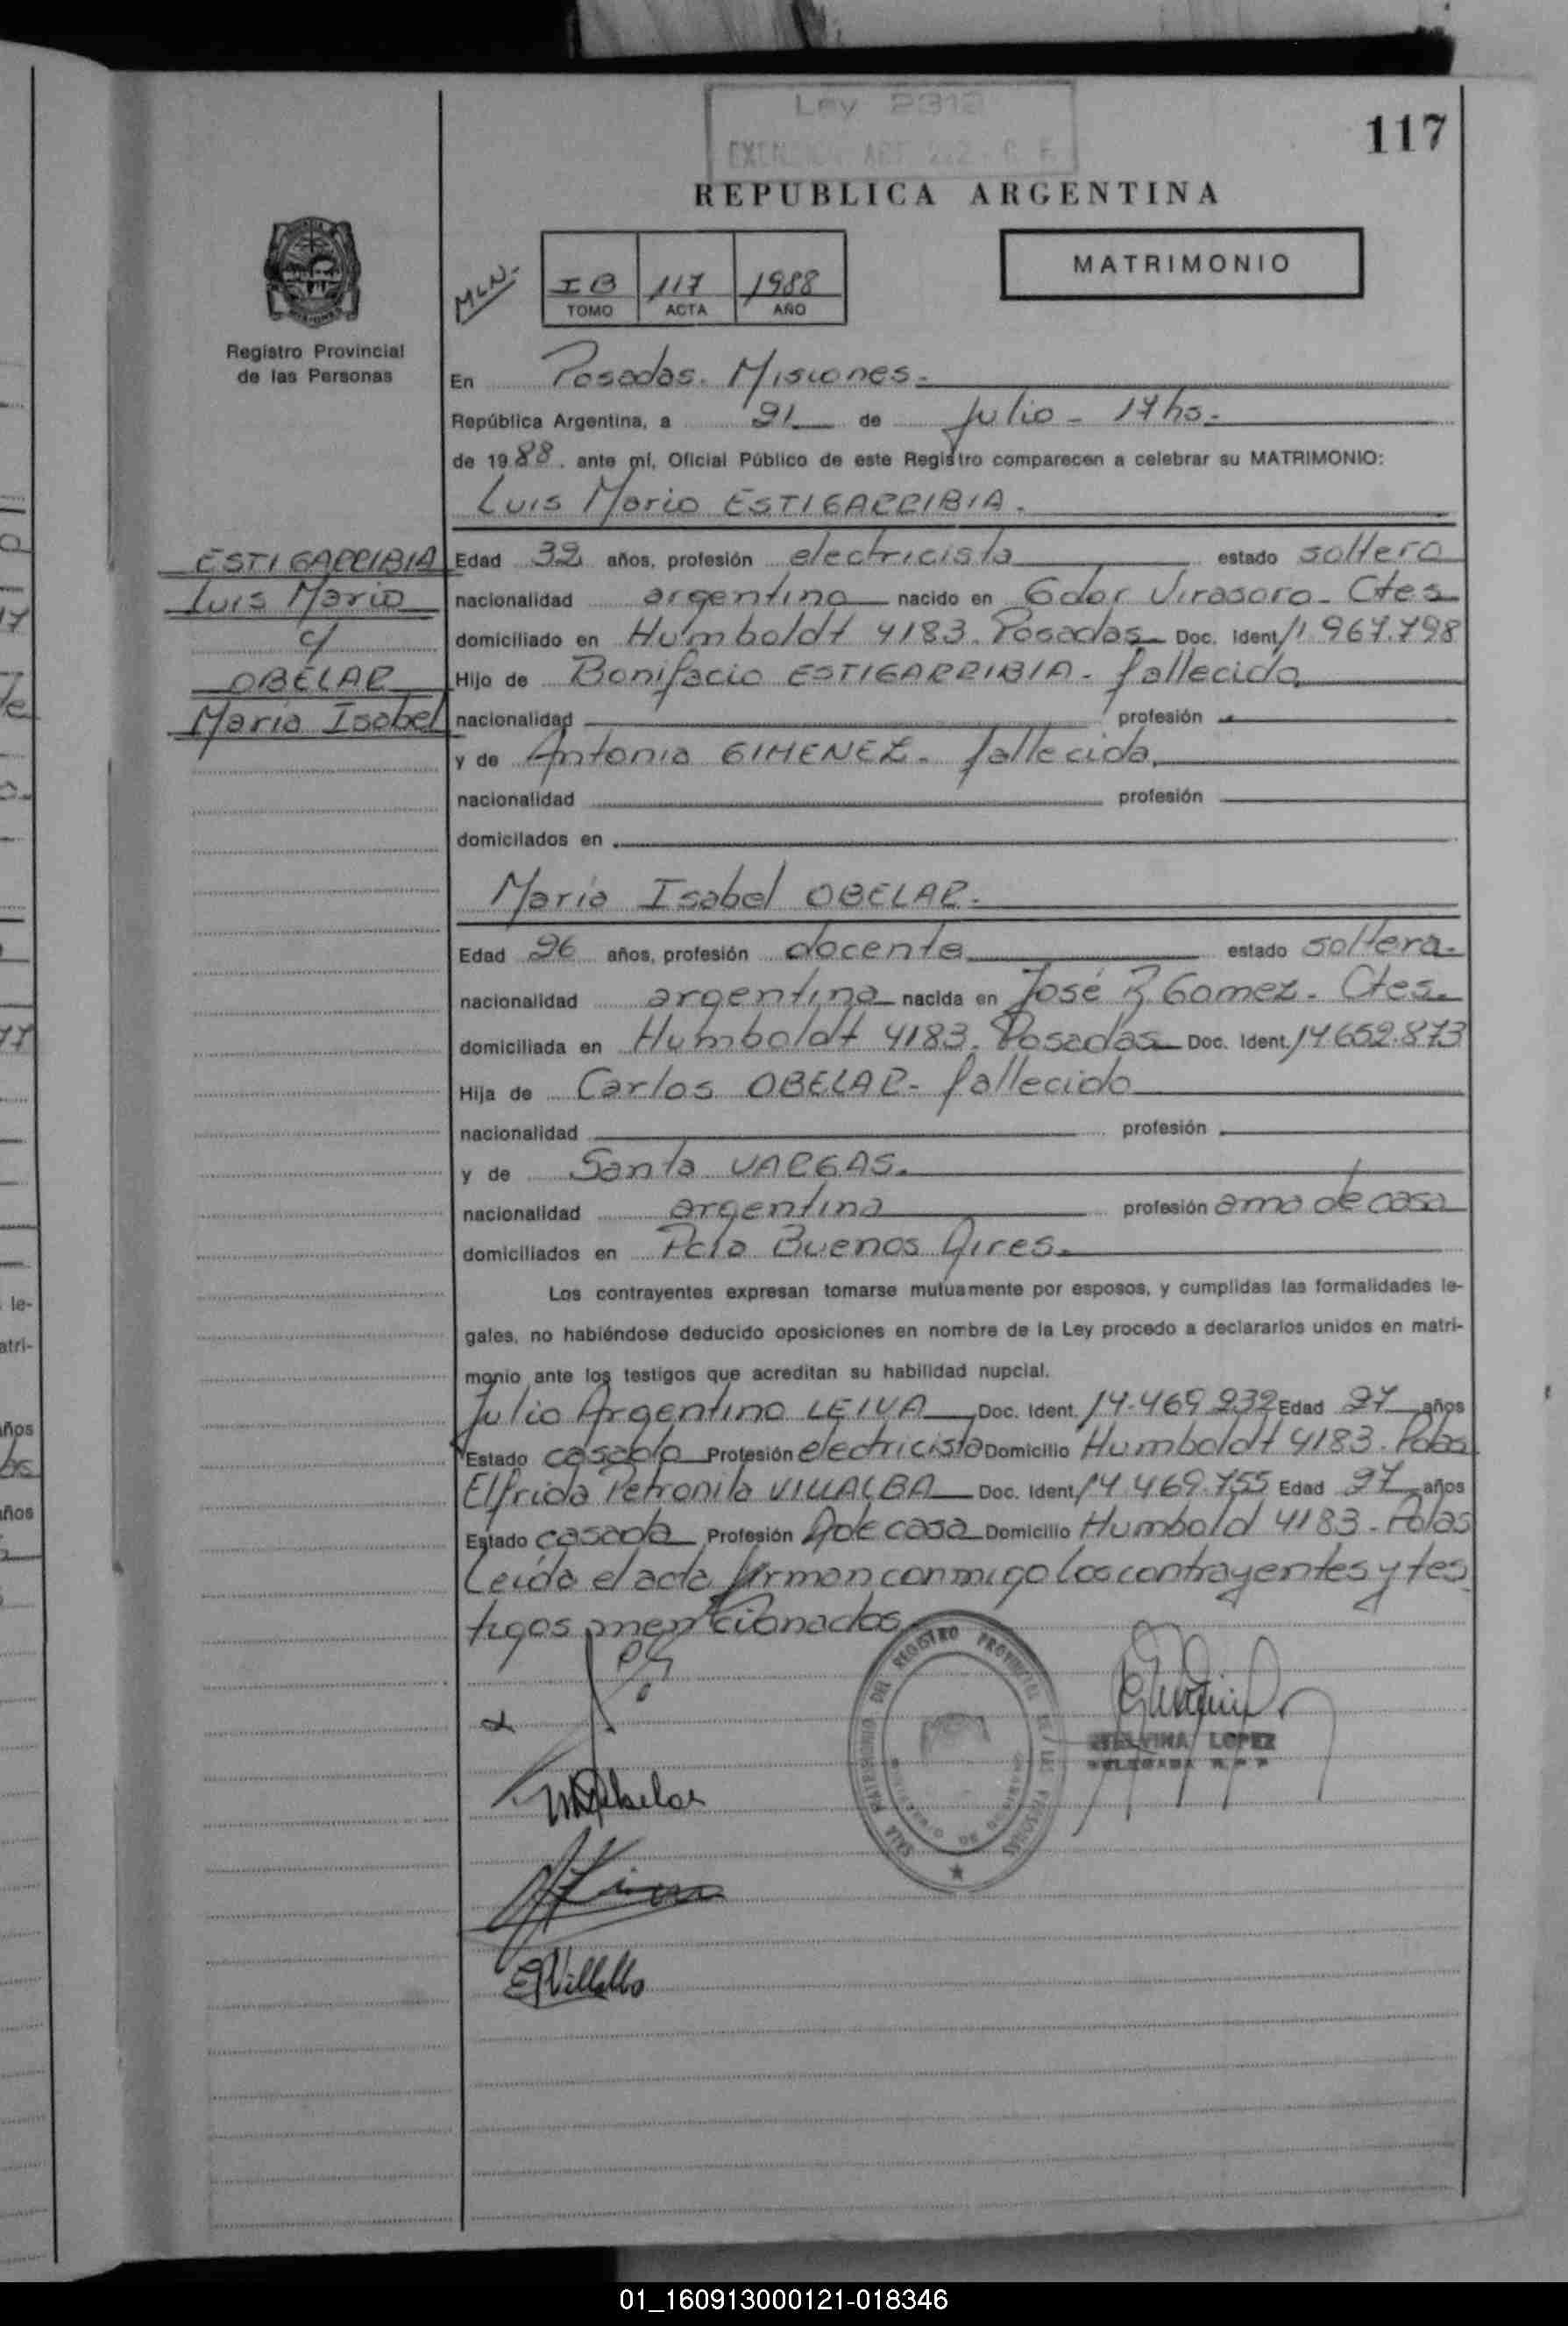 Ley 2312
117
REPUBLICA ARGENTINA
MATRIMONIO
MLN.-
I B 117 1988
TOMO ACTA AÑO
Registro Provincial
de las Personas
En Posadas. Misiones.-
República Argentina, a 21 de Julio - 17 hs.-
de 1988. ante mí, Oficial Público de este Registro comparecen a celebrar su MATRIMONIO:
Luis Mario ESTIGARRIBIA.
ESTIGARRIBIA
Luis Mario
c/
OBELAR
Maria Isabel
Edad 32 años, profesión electricista estado soltero
nacionalidad argentina nacido en Gdor Virasoro - Ctes
domiciliado en Humboldt 4183. Posadas Doc. Ident. 11 967.798
Hijo de Bonifacio ESTIGARRIBIA - fallecido
nacionalidad profesión
y de Antonia GIMENEZ - fallecida.
nacionalidad profesión
domicilados en
María Isabel OBELAR.-
Edad 26 años, profesión docente estado soltera.-
nacionalidad argentina nacida en José R. Gomez - Ctes.
domiciliada en Humboldt 4183. Posadas Doc. Ident. 14 652.873
Hija de Carlos OBELAR - fallecido
nacionalidad profesión
y de Santa VARGAS.
nacionalidad argentina profesión ama de casa
domiciliados en Pcia Buenos Aires.
Los contrayentes expresan tomarse mutuamente por esposos, y cumplidas las formalidades le-
gales, no habiéndose deducido oposiciones en nombre de la Ley procedo a declararlos unidos en matri-
monio ante los testigos que acreditan su habilidad nupcial.
Julio Argentino LEIVA Doc. Ident. 14.469 232 Edad 27 años
Estado casado Profesión electricista Domicilio Humboldt 4183. Pdas
Elfrida Petronila VILLALBA Doc. Ident. 14 469.755 Edad 27 años
Estado casada Profesión A de casa Domicilio Humbold 4183 - Pdas
Leída el acta firman conmigo los contrayentes y tes
tigos mencionados
SALA MATRIMONIOS DEL REGISTRO PROVINCIAL DE LAS PERSONAS
ETELVINA LOPEZ
DELEGADA R.P.P
M Obelar
E P Villalba
01_160913000121-018346